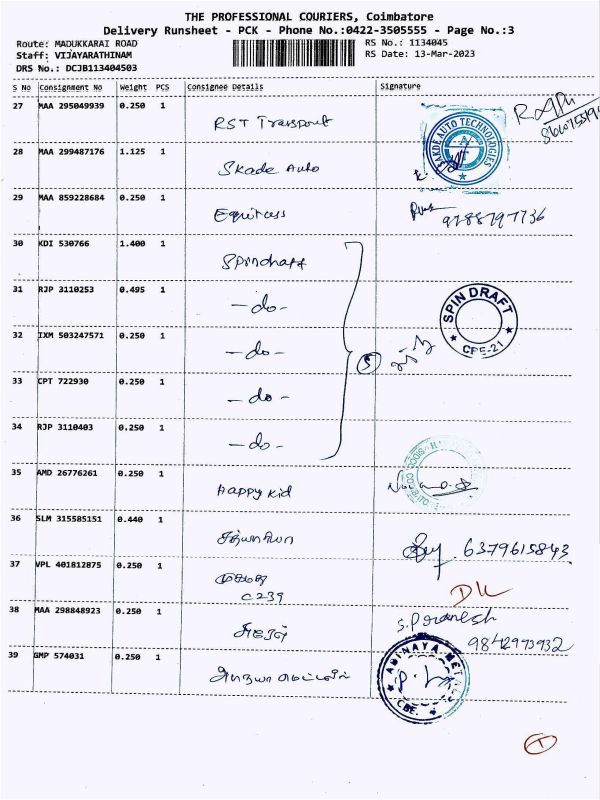 THE PROFESSIONAL COURIERS, Coimbatore
Delivery Runsheet - PCK - Phone No.:0422-3505555 - Page No.:3
Route: MADUKKARAI ROAD RS No.: 1134045
Staff: VIJAYARATHINAM RS Date: 13-Mar-2023
DRS No.: DCJB113404503
S No Consignment No Weight PCS Consignee Details Signature
27 MAA 295049939 0.250 1 RST Transport
28 MAA 299487176 1.125 1 Skade Auto SAKDE AUTO TECHNOLOGIES
29 MAA 859228684 0.250 1 Equitass 9788797736
30 KDI 530766 1.400 1 Spindraft
31 RJP 3110253 0.495 1 -do- SPIN DRAFT CBE-21
32 IXM 503247571 0.250 1 -do- 5
33 CPT 722930 0.250 1 -do-
34 RJP 3110403 0.250 1 -do-
35 AMD 26776261 0.250 1 Happy Kid
36 SLM 315585151 0.440 1 6379615843
37 VPL 401812875 0.250 1
C239 DL
38 MAA 298848923 0.250 1 S.Pranesh
9842993932
39 GMP 574031 0.250 1 அபிநயா மெட்டல் ABINAYA METAL CBE.